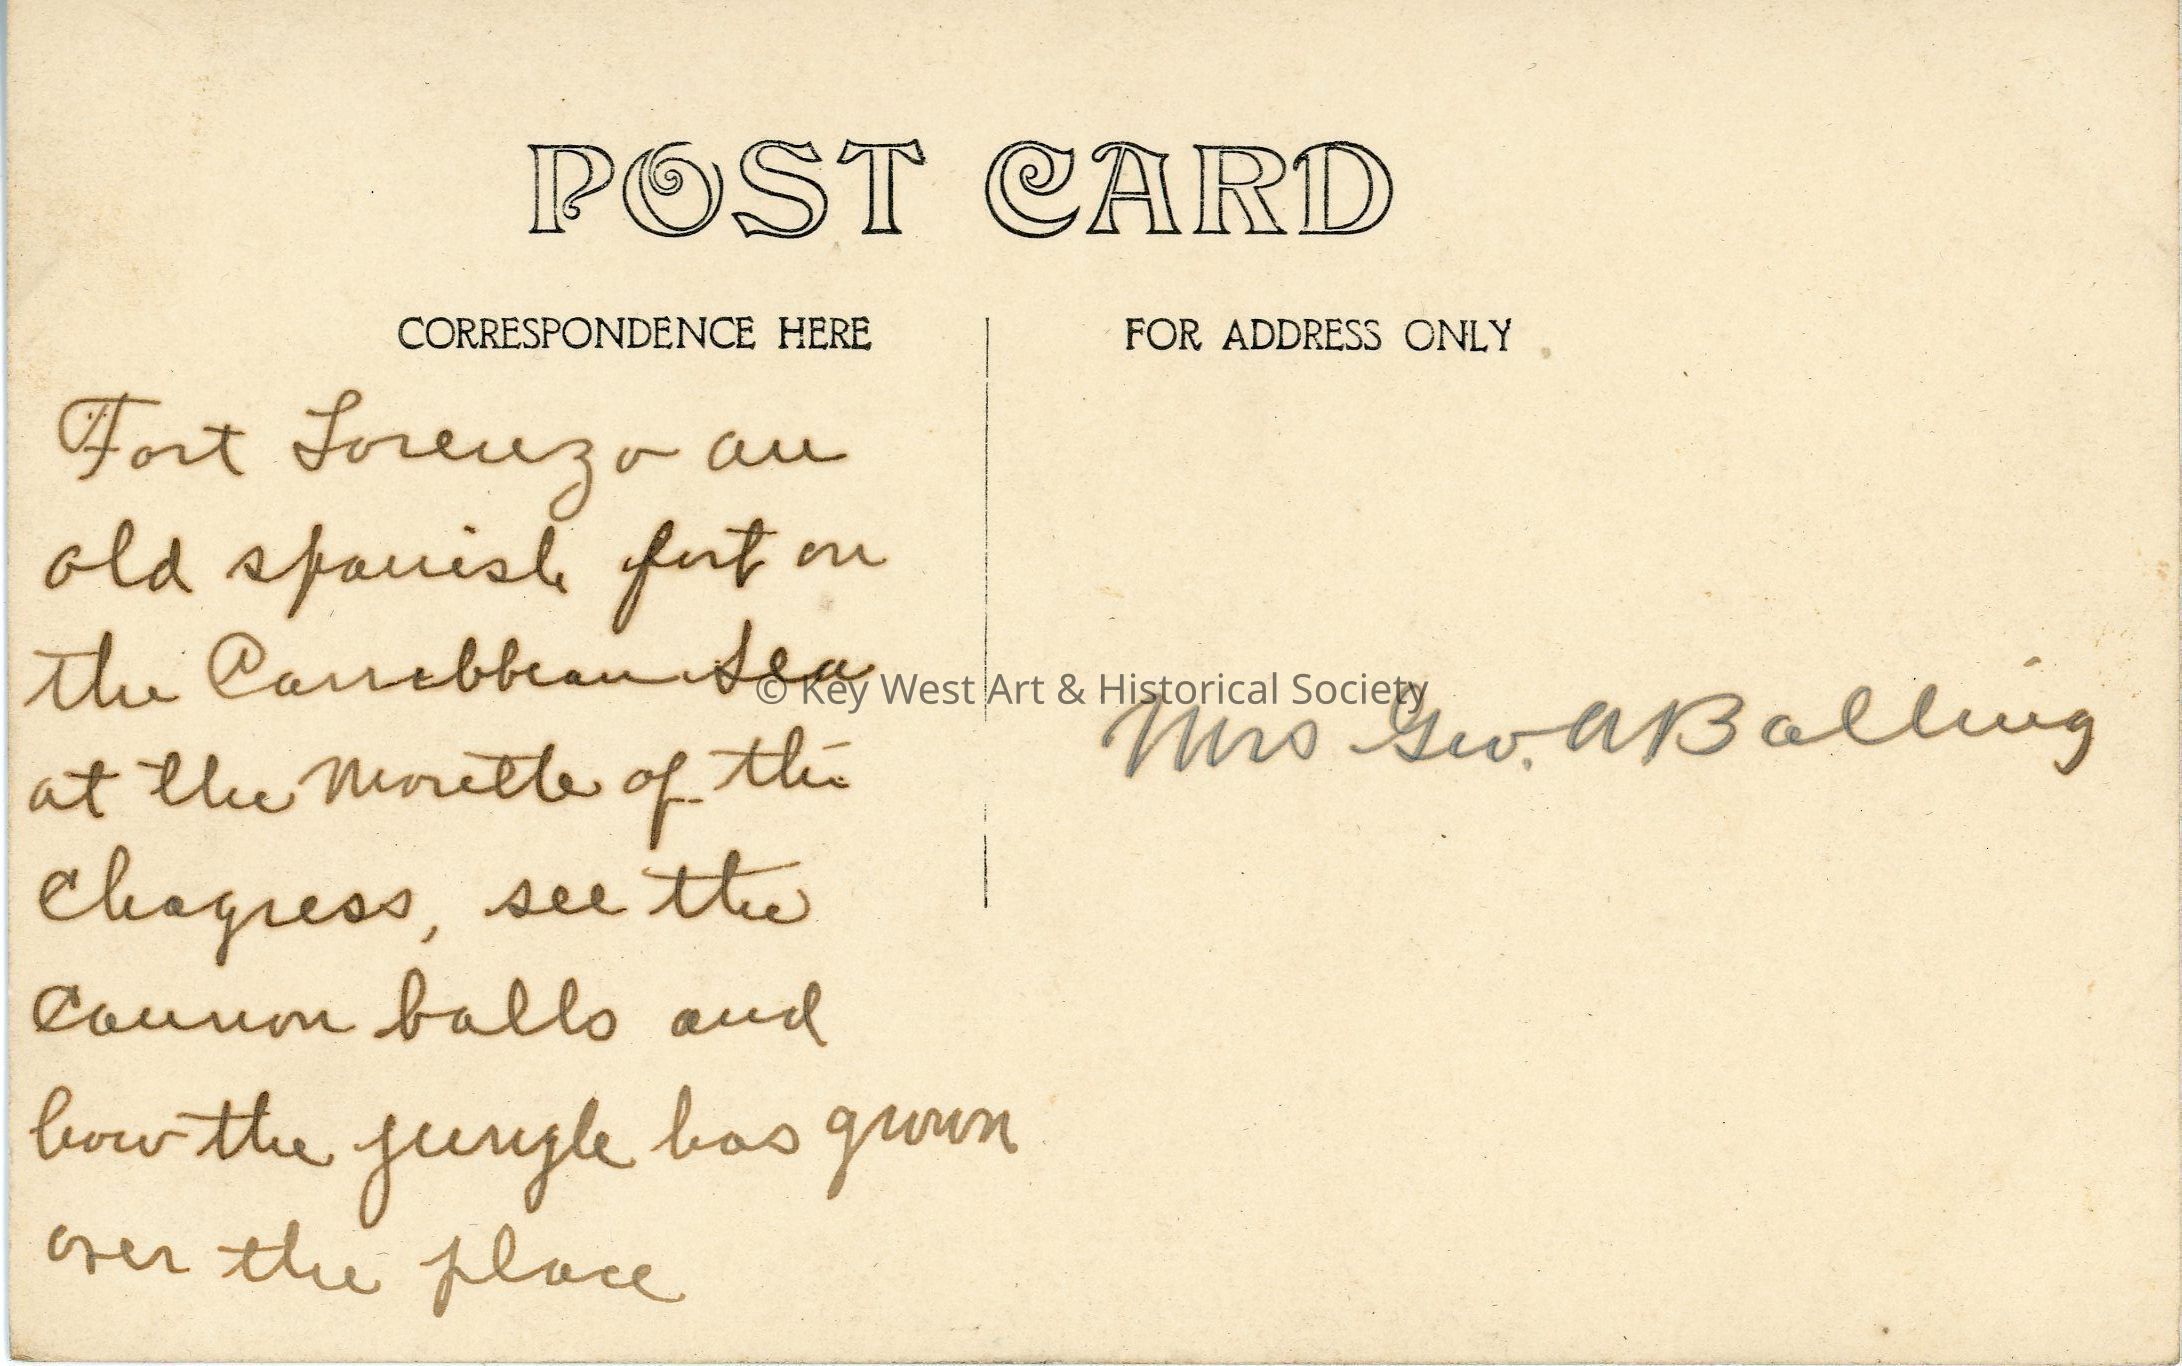 POST CARD
CORRESPONDENCE HERE
FOR ADDRESS ONLY
Fort Lorenzo an
old spanish fort on
the Carribbean Sea
at the Moutte of the
Chagress, see the
Cannon balls and
how the jungle has grown
over the place
Mrs Geo. A Balling
© Key West Art & Historical Society